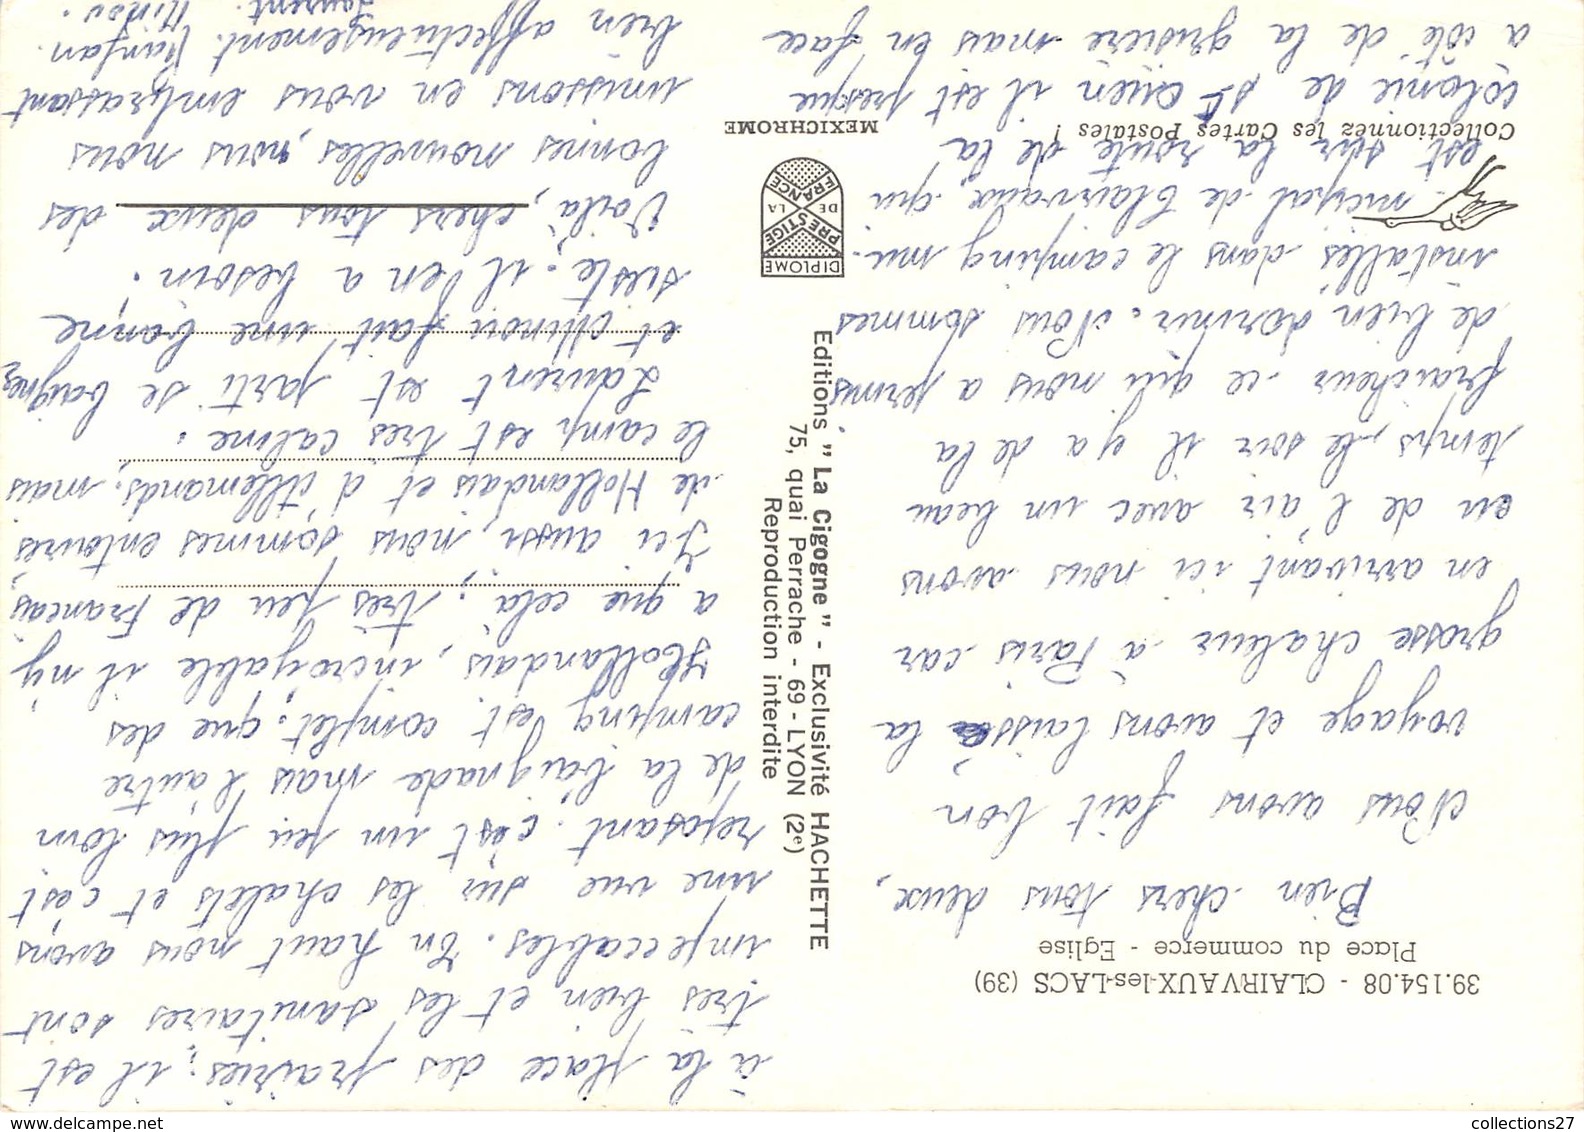 39.154.08 - CLAIRVAUX-les-LACS (39)
Place du commerce - Eglise
Bien chers tous deux,
Nous avons fait bon
voyage et avons laissé la
grosse chaleur à Paris car
en arrivant ici nous avons
eu de l'air avec un beau
temps, le soir il y a de la
fraicheur ce qui nous a permis
de bien dormir. Nous sommes
installés dans le camping mu-
nicipal de Clairvaux qui
est sur la route de la
colonie de St Ouen il est presque
a côté de la gruière mais en face
Collectionnez les Cartes Postales !
MEXICHROME
DIPLOME
PRESTIGE
DE LA
FRANCE
Editions " La Cigogne " - Exclusivité HACHETTE
75, quai Perrache - 69 - LYON (2e)
Reproduction interdite
à la place des prairies, il est
très bien et les sanitaires sont
impeccables. En haut nous avons
une vue sur les chalets et c'est
reposant. c'est un peu plus loin
de la baignade mais l'autre
camping est complet. que des
Hollandais, incroyable il n'y
a que cela, très peu de Francais,
Ici aussi, nous sommes entourés
de Hollandais et d'Allemands, mais
le camp est très calme.
Laurent est parti se baigner
et Minou fait une bonne
sieste. il en a besoin.
Voilà, chers tous deux des
bonnes nouvelles, nous nous
unissons en vous embrassant
bien affectueusement.
Laurent. Minou.
collections27